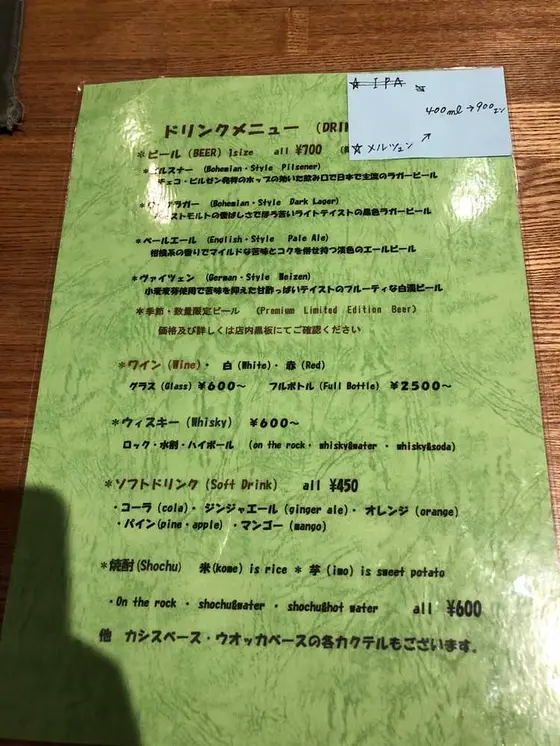 ☆ IPA
400ml→900エン
☆ メルツェン
ドリンクメニュー (DRIN
*ビール (BEER) 1size all ¥700
ルスナー (Bohemian・Style Pilsener)
チェコ・ピルゼン発祥のホップの効いた飲み口で日本で主流のラガービール
ラガー (Bohemian・Style Dark Lager)
ストモルトの香ばしさでほろ苦いライトテイストの黒色ラガービール
*ペールエール (English・Style Pale Ale)
柑橘系の香りでマイルドな苦味とコクを併せ持つ淡色のエールビール
*ヴァイツェン (German・Style Weizen)
小麦麦芽使用で苦味を抑えた甘酸っぱいテイストのフルーティな白濁ビール
*季節・数量限定ビール (Premium Limited Edition Beer)
価格及び詳しくは店内黒板にてご確認ください
*ワイン (Wine)・ 白 (White)・ 赤 (Red)
グラス (Glass) ¥600～ フルボトル (Full Bottle) ¥2500～
*ウィスキー (Whisky) ¥600～
ロック・水割・ハイボール (on the rock・ whisky&water ・ whisky&soda)
*ソフトドリンク (Soft Drink) all ¥450
・コーラ (cola)・ ジンジャエール (ginger ale)・ オレンジ (orange)
・パイン(pine・apple) ・マンゴー (mango)
*焼酎(Shochu) 米(kome) is rice * 芋 (imo) is sweet potato
・On the rock ・ shochu&water ・ shochu&hot water all ¥600
他 カシスベース・ウオッカベースの各カクテルもございます。